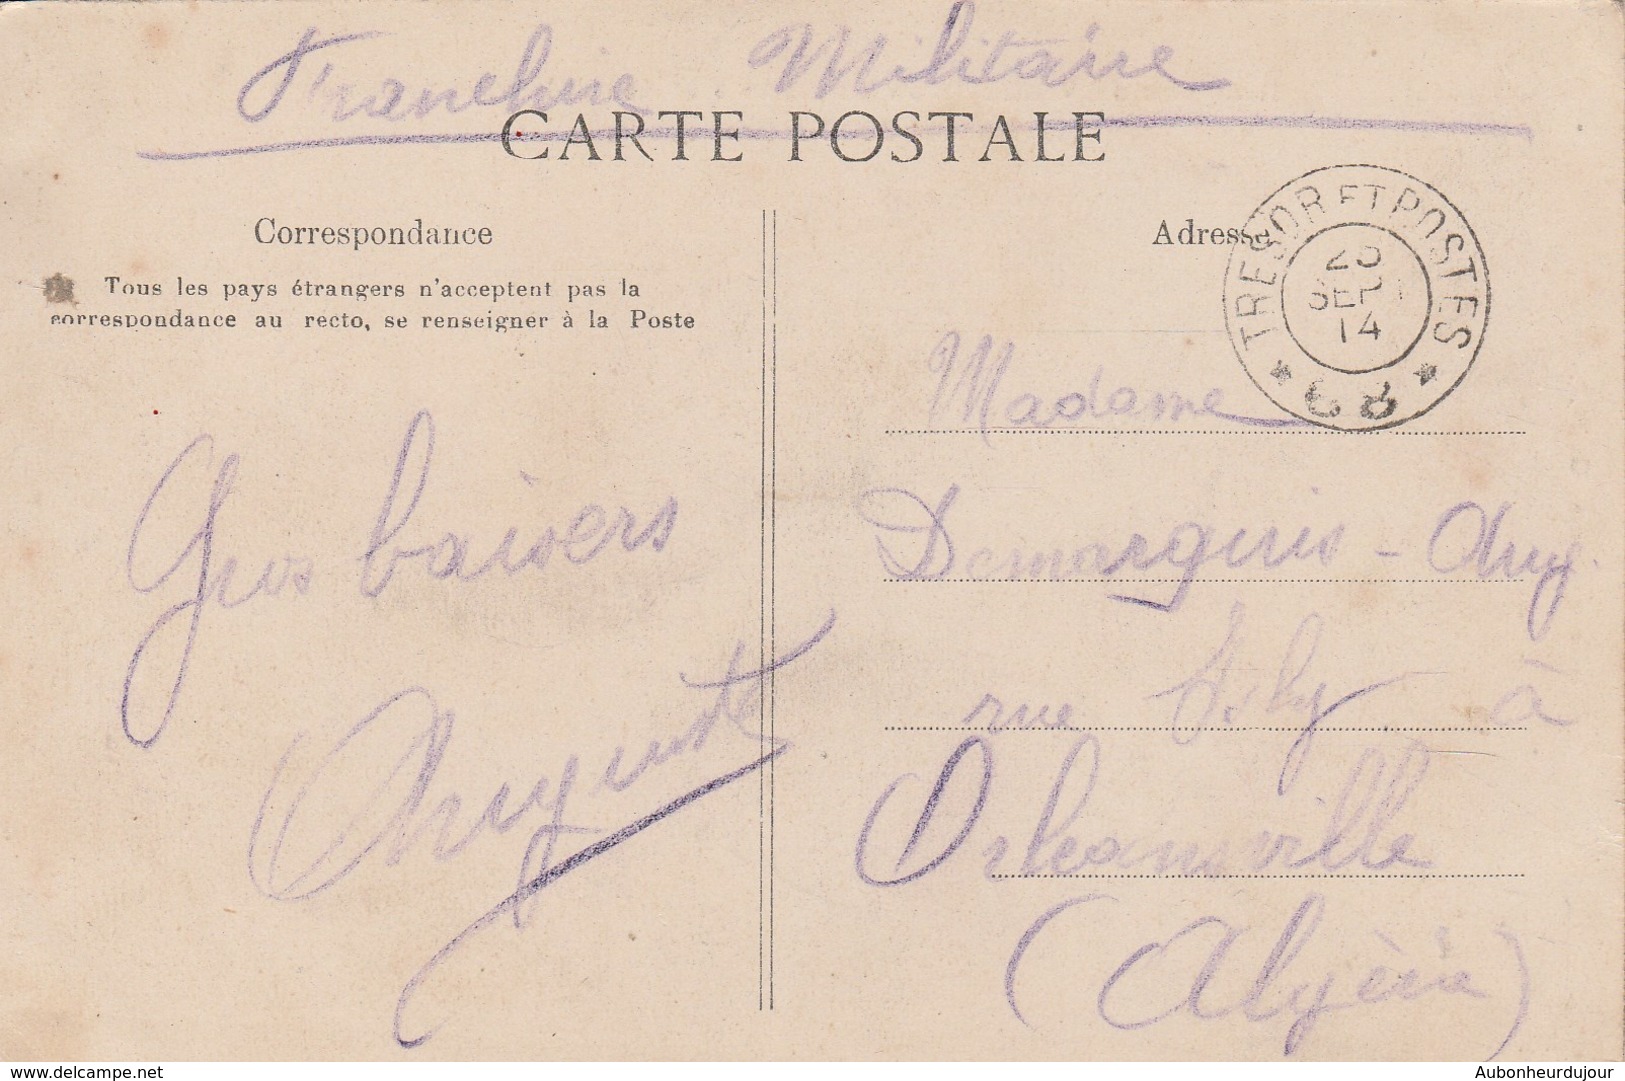 Franchise Militaire
CARTE POSTALE
Correspondance
Tous les pays étrangers n'acceptent pas la
correspondance au recto, se renseigner à la Poste
Gros baisers
Auguste
Adresse
TRESOR ET POSTES
SEPT
14
Madame
Demarquis - Aug.
rue Isly à
Orléansville
(Algérie)
www.delcampe.net
Aubonheurdujour